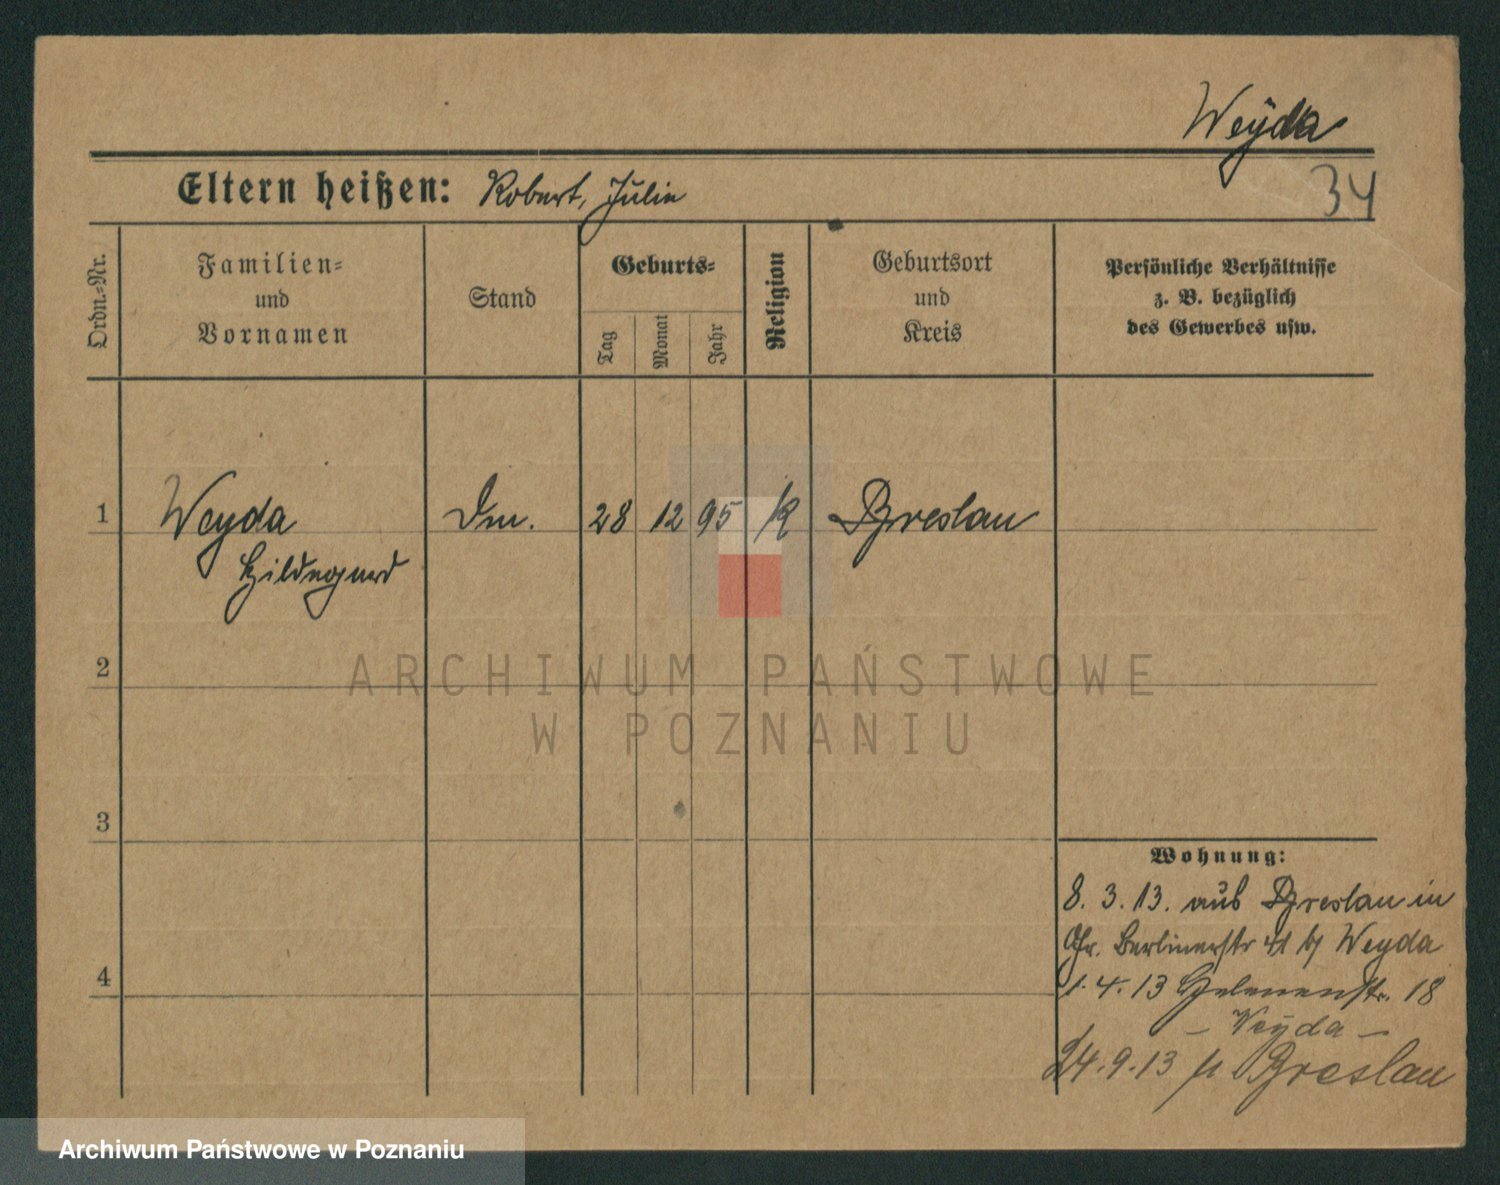 Weÿda
34
Eltern heißen: Robert, Julie
Ordn.-Nr.
Familien-
und
Vornamen
Stand
Geburts-
Tag
Monat
Jahr
Religion
Geburtsort
und
Kreis
Persönliche Verhältnisse
z. B. bezüglich
des Gewerbes usw.
1 Weyda 28 12 95 k Breslau
Hildegard
2
ARCHIWUM PAŃSTWOWE
W POZNANIU
3
4
Wohnung:
8. 3. 13. aus Breslau in
Berlinerstr Weyda
1. 4. 13 Helenenstr. 18
— Weÿda —
24. 9. 13 Breslau
Archiwum Państwowe w Poznaniu